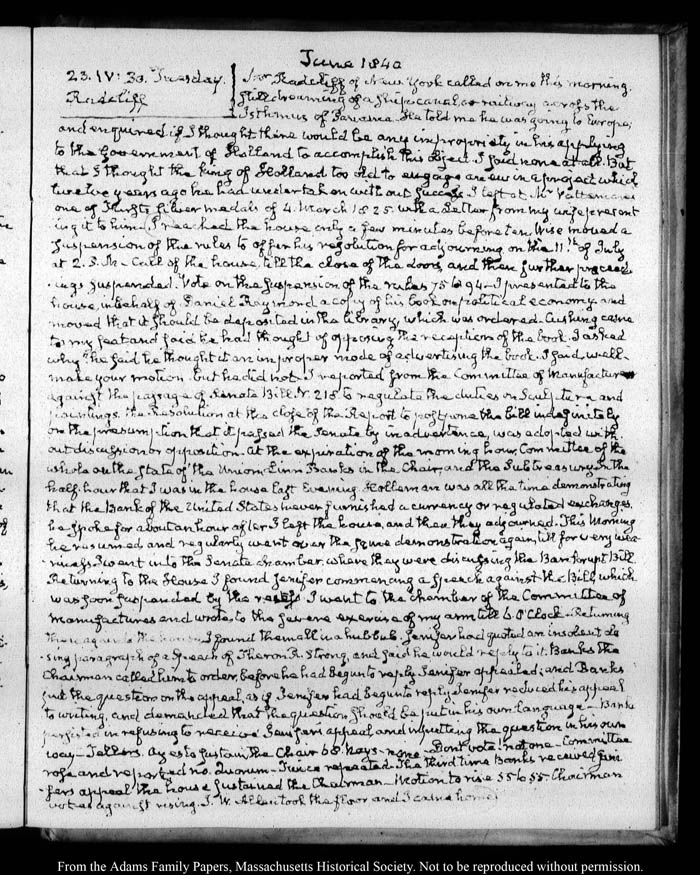 June 1840
23. IV: 30. Tuesday.
Radcliff
Mr Radcliff of New York called on me this morning.
still dreaming of a ship canal or railway across the
Isthmus of Panama. He told me he was going to Europe;
and enquired if I thought there would be any impropriety in his applying
to the Government of Holland to accomplish this object. I said none at all. But
that I thought the king of Holland too old to engage anew in a project which
twelve years ago he had undertaken without success. I left at Mr Vattemare's
one of Furst's Silver medals of 4. March 1825. with a Letter from my wife present
ing it to him. I reached the house only a few minutes before ten. Wise moved a
suspension of the rules to offer his resolution for adjourning on the 11th of July
at 2. P.M. Call of the house, till the close of the doors, and then further proceed
ings suspended. Vote on the suspension of the rules 75 to 94. I presented to the
house, in behalf of Daniel Raymond a copy of his book on political economy and
moved that it should be deposited in the library, which was ordered. Cushing came
to my seat and said he had thought of opposing the reception of the book. I asked
why? he said he thought it an improper mode of advertising the book. I said well
make your motion. but he did not. I reported from the Committee of Manufactures
against the passage of Senate Bill N. 218 to regulate the duties on Sculpture and
paintings. the Resolution at the close of the Report to postpone the bill indefinitely
on the presumption that it passed the Senate by inadvertence, was adopted with-
out discussion or opposition. At the expiration of the morning hour, Committee of the
whole on the state of the Union, Linn Banks in the Chair, and the Subtreasury. In the
half-hour that I was in the house last Evening. Holleman was all the time demonstrating
that the Bank of the United States never furnished a currency or regulated exchanges.
he spoke for about an hour after I left the house, and then they adjourned. This Morning
he resumed and regularly went over the same demonstration again, till for very wea-
riness I went into the Senate chamber, where they were discussing the Bankrupt Bill.
Returning to the House I found Jenifer commencing a Speech against the Bill, which
was soon suspended by the recess. I went to the chamber of the Committee of
manufactures and wrote, to the severe exercise of my arm till 6. O'Clock. Returning
then again to the house, I found them all in a hubbub. Jenifer had quoted an insolent
paragraph of a Speech of Theron R. Strong, and said he would reply to it. Banks the
Chairman called him to order, before he had begun to reply. Jenifer appealed; and Banks
put the question on the appeal, as if Jenifer had begun to reply. Jenifer reduced his appeal
to writing, and demanded that the question should be put in his own language. Banks
persisted in refusing to receive Jenifer's appeal and in putting the question in his own
way. Tellers. Ayes to sustain the Chair 68. Nays - none. Dont vote! not one. Committee
rose and reported no quorum. Twice repeated. The third time Banks received Jeni
fers appeal. the house sustained the Chairman. Motion to rise 55 to 55. Chairman
votes against rising. J. W. Allen took the floor and I came home.
From the Adams Family Papers, Massachusetts Historical Society. Not to be reproduced without permission.